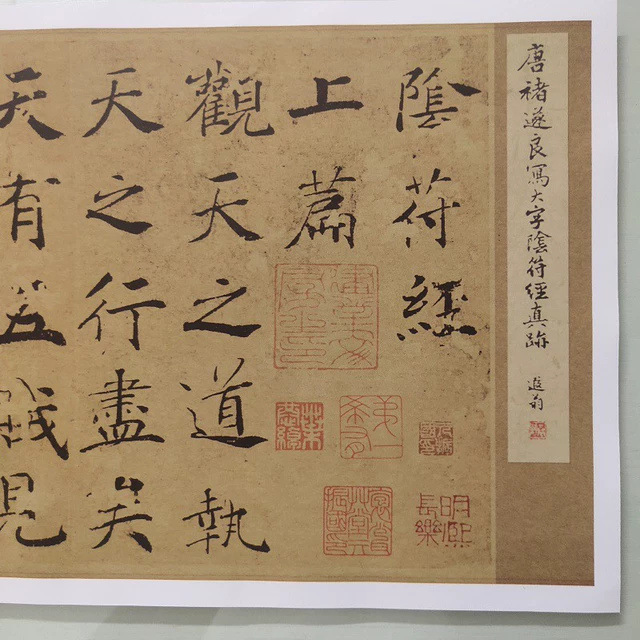 唐褚遂良寫大字陰符經真跡
陰符經
上篇
觀天之道執
天之行盡矣
天有五賊見
明熙
長樂